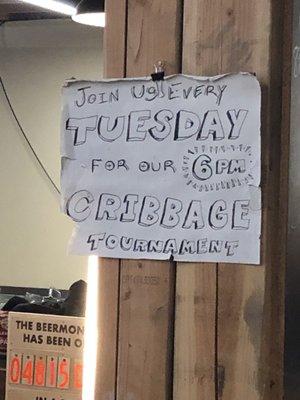 JOIN US EVERY
TUESDAY
FOR OUR 6PM
CRIBBAGE
TOURNAMENT
THE BEERMON
HAS BEEN O
04815